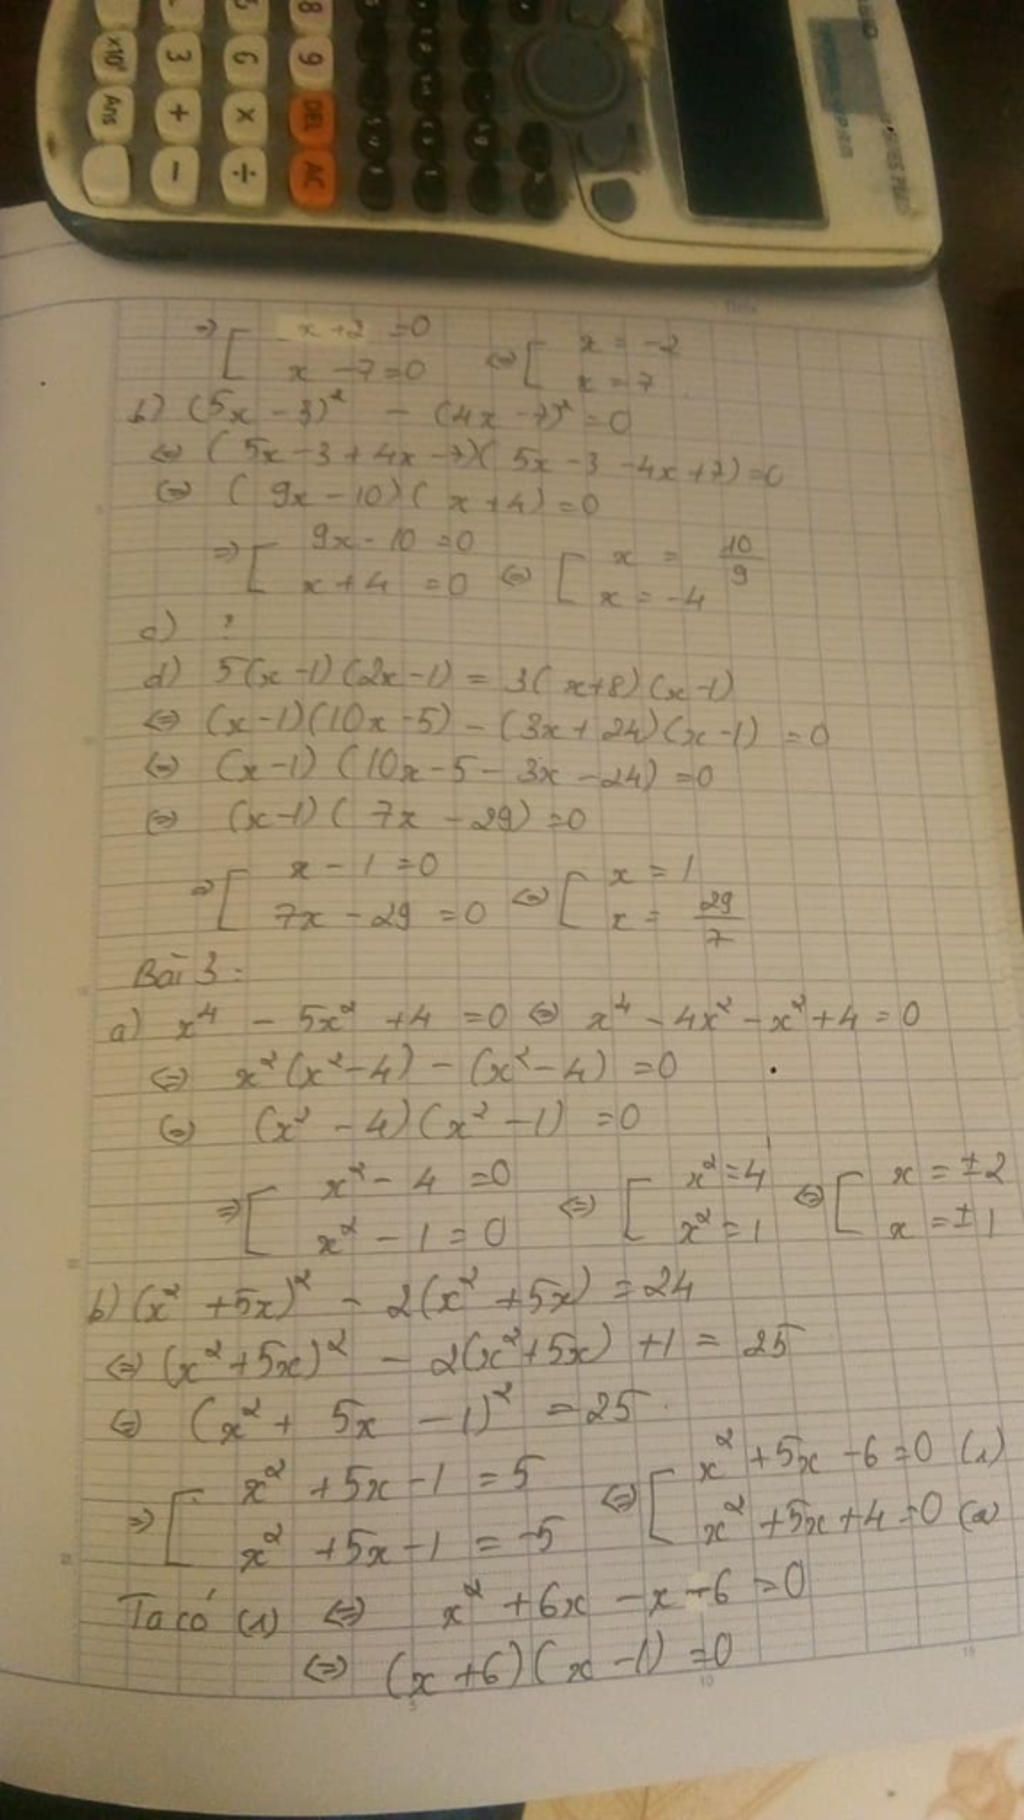 8
5
9
6
3
x10ˣ
DEL
×
+
Ans
AC
÷
−
⇒ [ x + 2 = 0 ⇔ [ x = -2
x - 7 = 0 x = 7
b) (5x - 3)² - (4x - 7)² = 0
⇔ (5x - 3 + 4x - 7)(5x - 3 - 4x + 7) = 0
⇔ (9x - 10)(x + 4) = 0
⇒ [ 9x - 10 = 0 ⇔ [ x = 10/9
x + 4 = 0 x = -4
c) ?
d) 5(x - 1)(2x - 1) = 3(x + 8)(x - 1)
⇔ (x - 1)(10x - 5) - (3x + 24)(x - 1) = 0
⇔ (x - 1)(10x - 5 - 3x - 24) = 0
⇔ (x - 1)(7x - 29) = 0
⇒ [ x - 1 = 0 ⇔ [ x = 1
7x - 29 = 0 x = 29/7
Bài 3 :
a) x⁴ - 5x² + 4 = 0 ⇔ x⁴ - 4x² - x² + 4 = 0
⇔ x²(x² - 4) - (x² - 4) = 0
⇔ (x² - 4)(x² - 1) = 0
⇒ [ x² - 4 = 0 ⇔ [ x² = 4 ⇔ [ x = ±2
x² - 1 = 0 x² = 1 x = ±1
b) (x² + 5x)² - 2(x² + 5x) = 24
⇔ (x² + 5x)² - 2(x² + 5x) + 1 = 25
⇔ (x² + 5x - 1)² = 25
⇒ [ x² + 5x - 1 = 5 ⇔ [ x² + 5x - 6 = 0 (1)
x² + 5x - 1 = -5 x² + 5x + 4 = 0 (2)
Ta có (1) ⇔ x² + 6x - x - 6 = 0
⇔ (x + 6)(x - 1) = 0
5
10
15